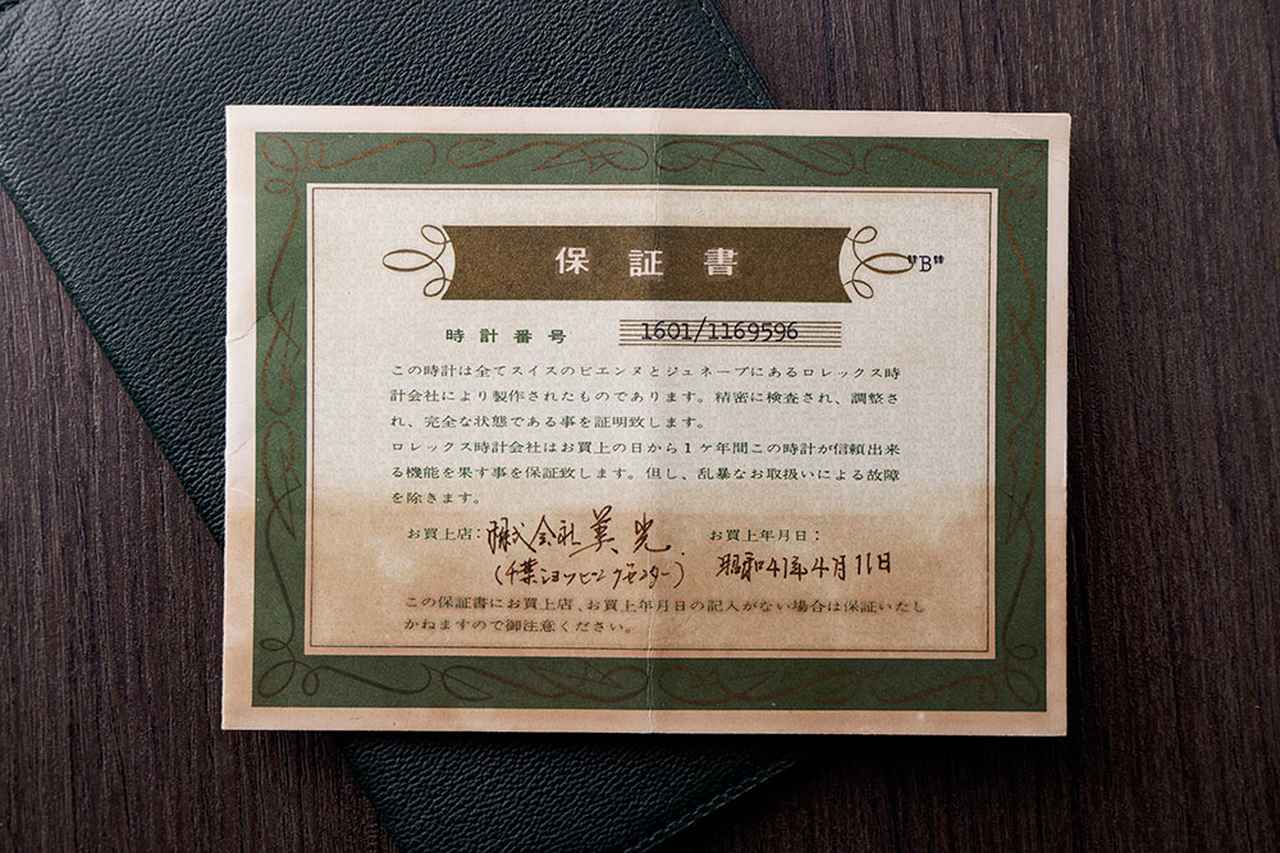 保証書
"B"
時計番号 1601/1169596
この時計は全てスイスのビエンヌとジュネーブにあるロレックス時
計会社により製作されたものであります。精密に検査され、調整さ
れ、完全な状態である事を証明致します。
ロレックス時計会社はお買上の日から1ケ年間この時計が信頼出来
る機能を果す事を保証致します。但し、乱暴なお取扱いによる故障
を除きます。
お買上店：株式会社美光 お買上年月日：
(千葉ショッピングセンター) 昭和41年4月11日
この保証書にお買上店、お買上年月日の記入がない場合は保証いたし
かねますので御注意ください。